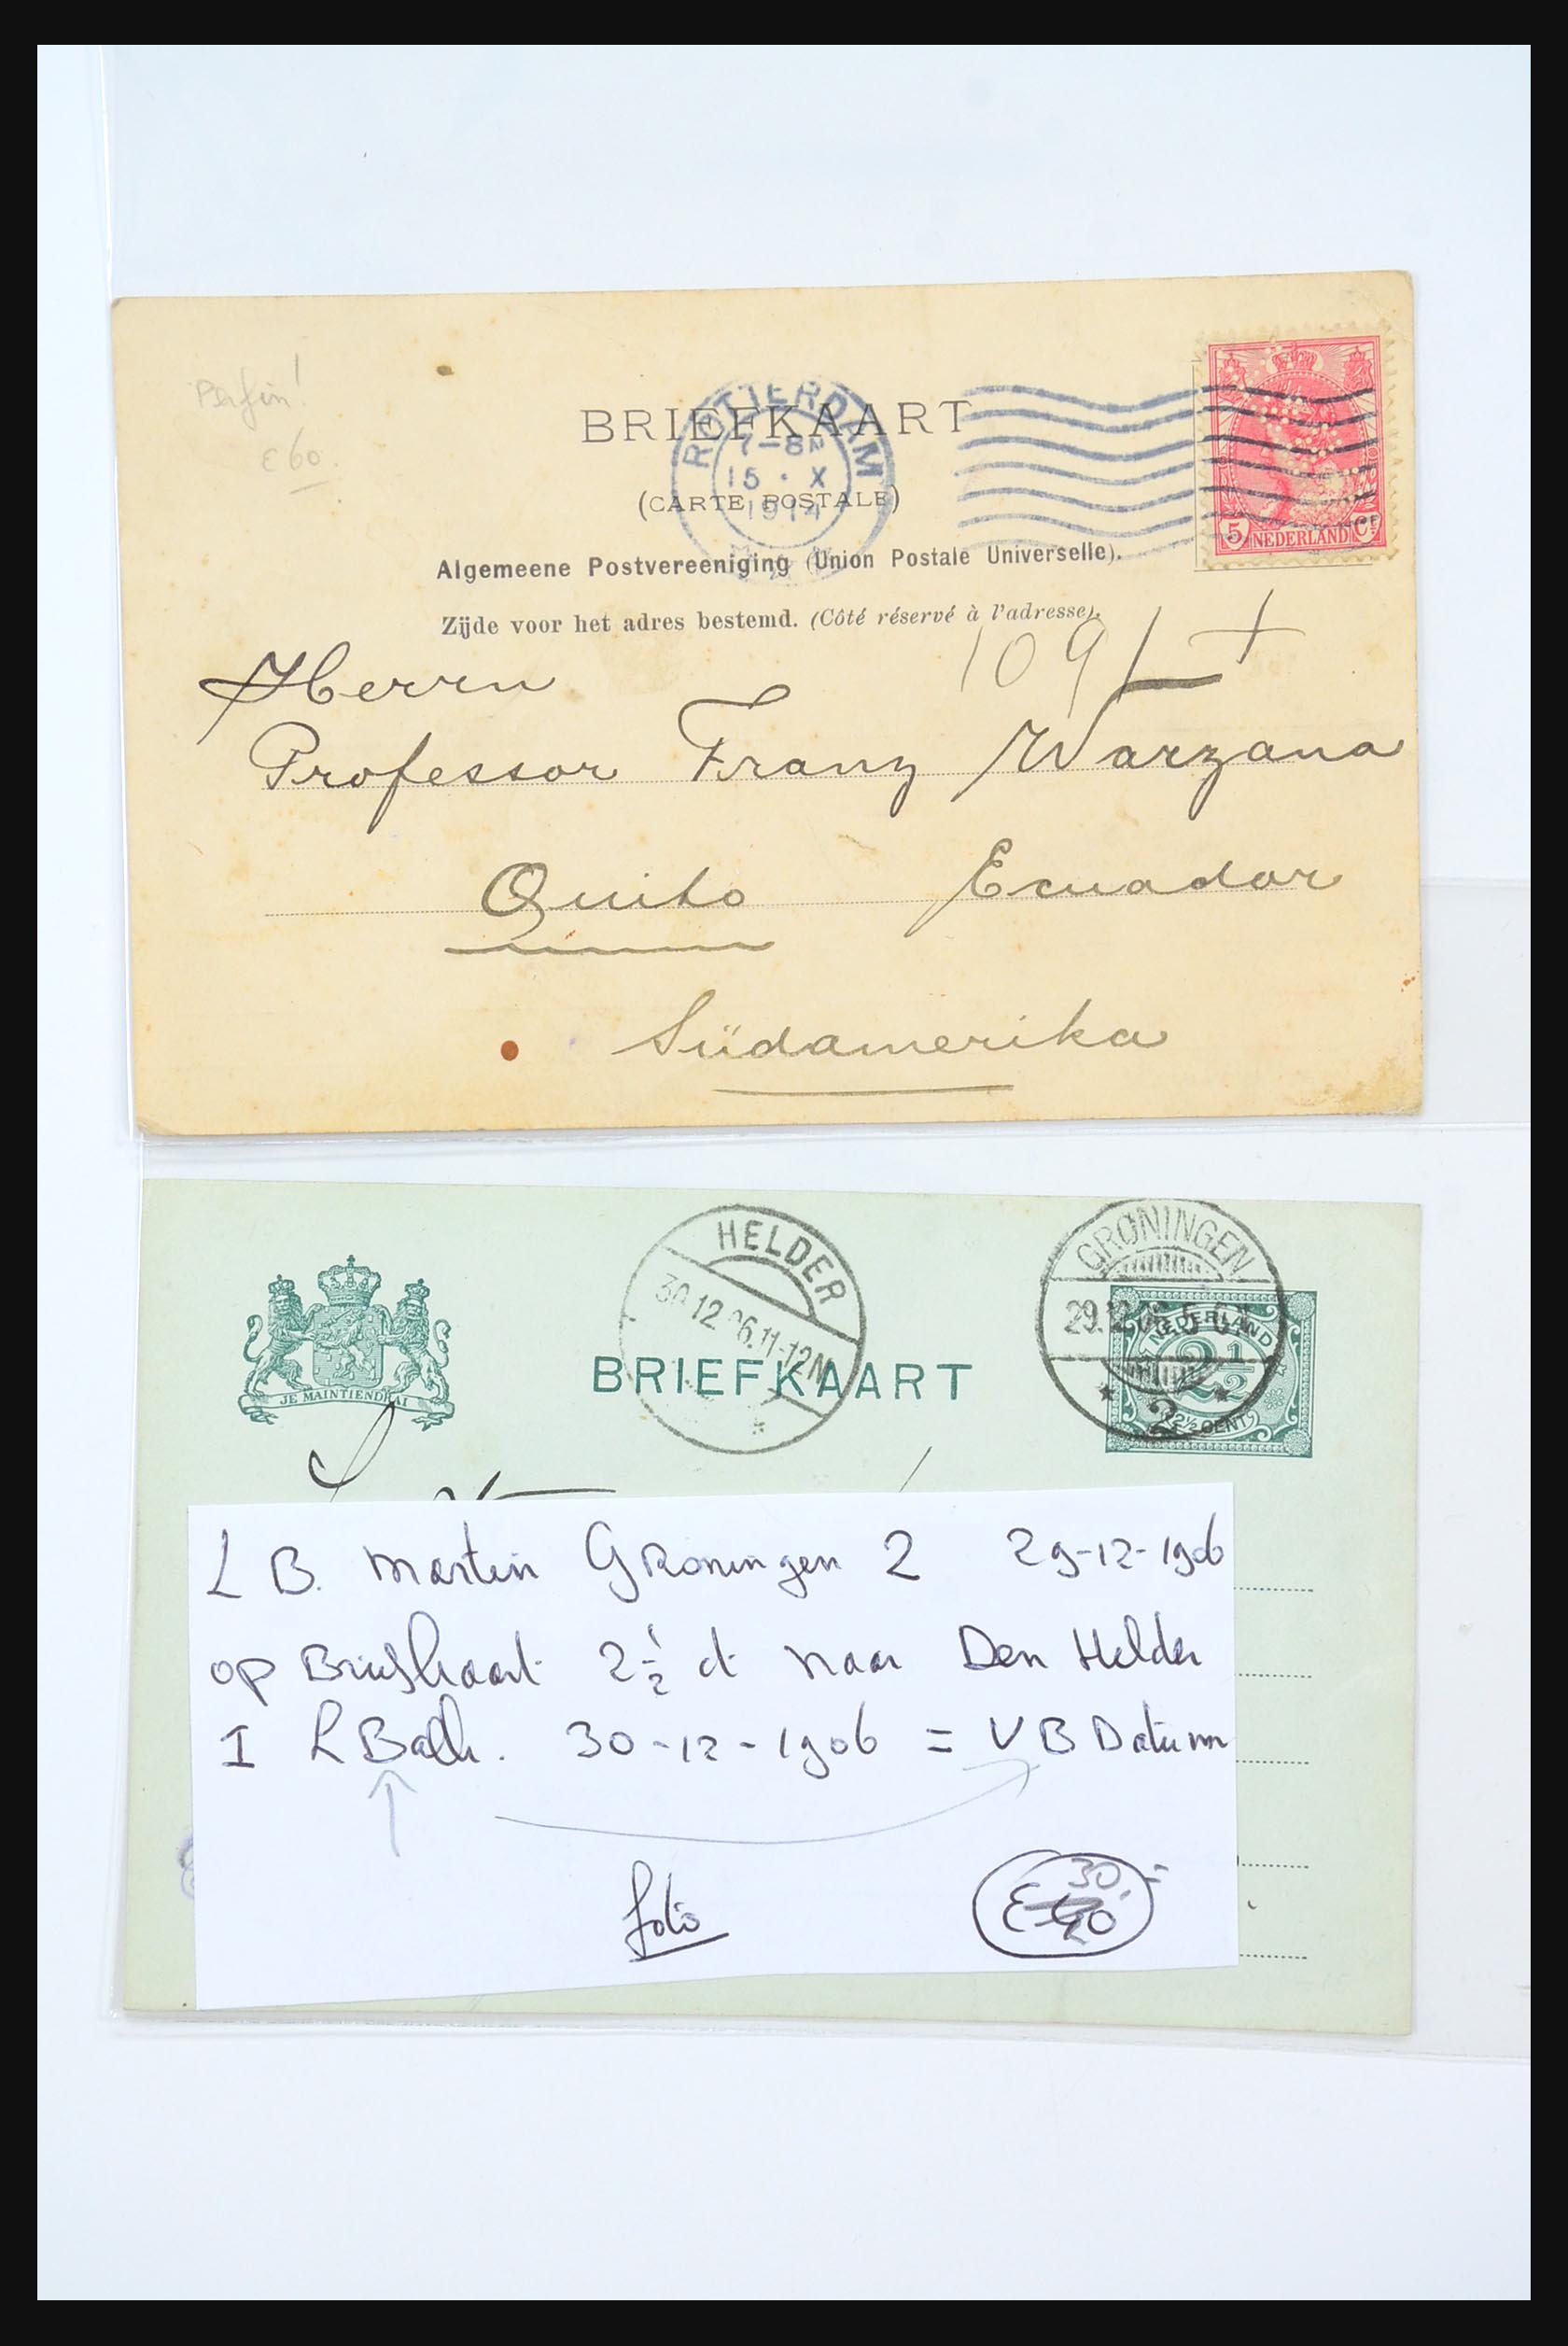 Perfin!
€60.
BRIEFKAART
(CARTE POSTALE)
Algemeene Postvereeniging (Union Postale Universelle).
Zijde voor het adres bestemd. (Côté réservé à l'adresse).
ROTTERDAM
7-8N
15 · X
1914
5 NEDERLAND CT
109
Herrn
Professor Franz Warzana
Quito Ecuador
Südamerika
JE MAINTIENDRAI
HELDER
30.12.06.11-12N
BRIEFKAART
GRONINGEN
29.12.06
2
NEDERLAND
2½
2½ CENT
L B. Martin Groningen 2 29-12-1906
op Briefkaart 2½ ct naar Den Helder
I 30-12-1906 = V B Datum
foto
30,-